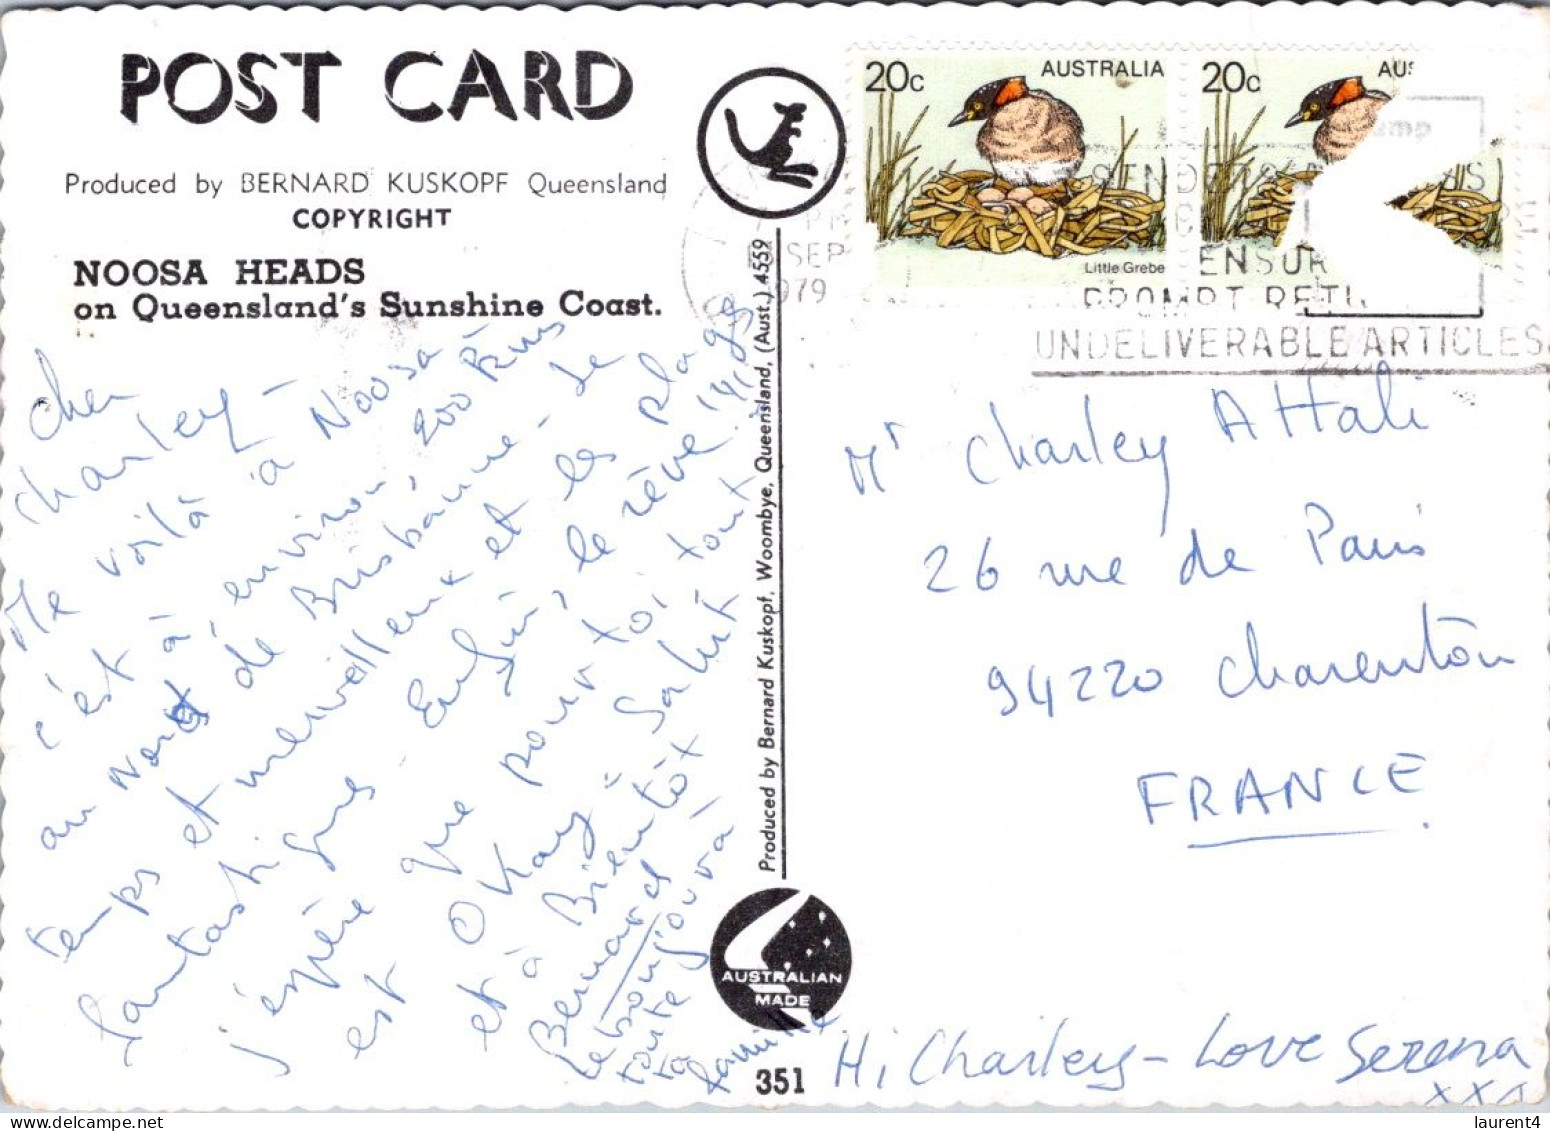 POST CARD
Produced by BERNARD KUSKOPF Queensland
COPYRIGHT
NOOSA HEADS
on Queensland's Sunshine Coast.
Cher
Charley -
Me voilà à Noosa
c'est à environ 200 Kms
au Nord de Brisbanne - Le
temps et merveilleux et les plages
fantastiques - Enfin, le rêve !
j'espère que pour toi, tout
est Okay - Salut
et à Bientôt
Bernard
Le bonjour à
toute
ta
famille
Produced by Bernard Kuskopf, Woombye, Queensland, (Aust.) 4559
AUSTRALIAN
MADE
351
20c AUSTRALIA
Little Grebe
20c AUS
SEP
1979
ENSUR
PROMPT RETU
UNDELIVERABLE ARTICLES
Mr Charley Attali
26 rue de Paris
94220 Charenton
FRANCE
Hi Charley - Love Serena
xxx
delcampe.net
laurent4